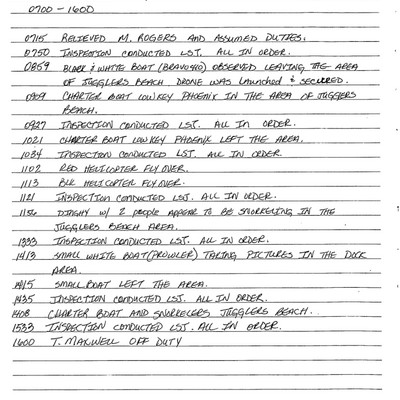 0700 - 1600
0715 RELIEVED M. ROGERS AND ASSUMED DUTIES.
0750 INSPECTION CONDUCTED LSJ. ALL IN ORDER.
0859 BLACK & WHITE BOAT (BRAVO 440) OBSERVED LEAVING THE AREA
OF JUGGLERS BEACH. DRONE WAS LAUNCHED & SECURED.
0909 CHARTER BOAT LOWKEY PHOENIX IN THE AREA OF JUGGLERS
BEACH.
0927 INSPECTION CONDUCTED LSJ. ALL IN ORDER.
1021 CHARTER BOAT LOWKEY PHOENIX LEFT THE AREA.
1034 INSPECTION CONDUCTED LSJ. ALL IN ORDER.
1102 RED HELICOPTER FLY OVER.
1113 BLK HELICOPTER FLY OVER.
1121 INSPECTION CONDUCTED LSJ. ALL IN ORDER.
DINGHY W/ 2 PEOPLE APPEAR TO BE SNORKELING IN THE
JUGGLERS BEACH AREA.
1333 INSPECTION CONDUCTED LSJ. ALL IN ORDER.
1413 SMALL WHITE BOAT (PROWLER) TAKING PICTURES IN THE DOCK
AREA.
1415 SMALL BOAT LEFT THE AREA.
1435 INSPECTION CONDUCTED LSJ. ALL IN ORDER.
1408 CHARTER BOAT AND SNORKELERS JUGGLERS BEACH.
1533 INSPECTION CONDUCTED LSJ. ALL IN ORDER.
1600 T. MAXWELL OFF DUTY